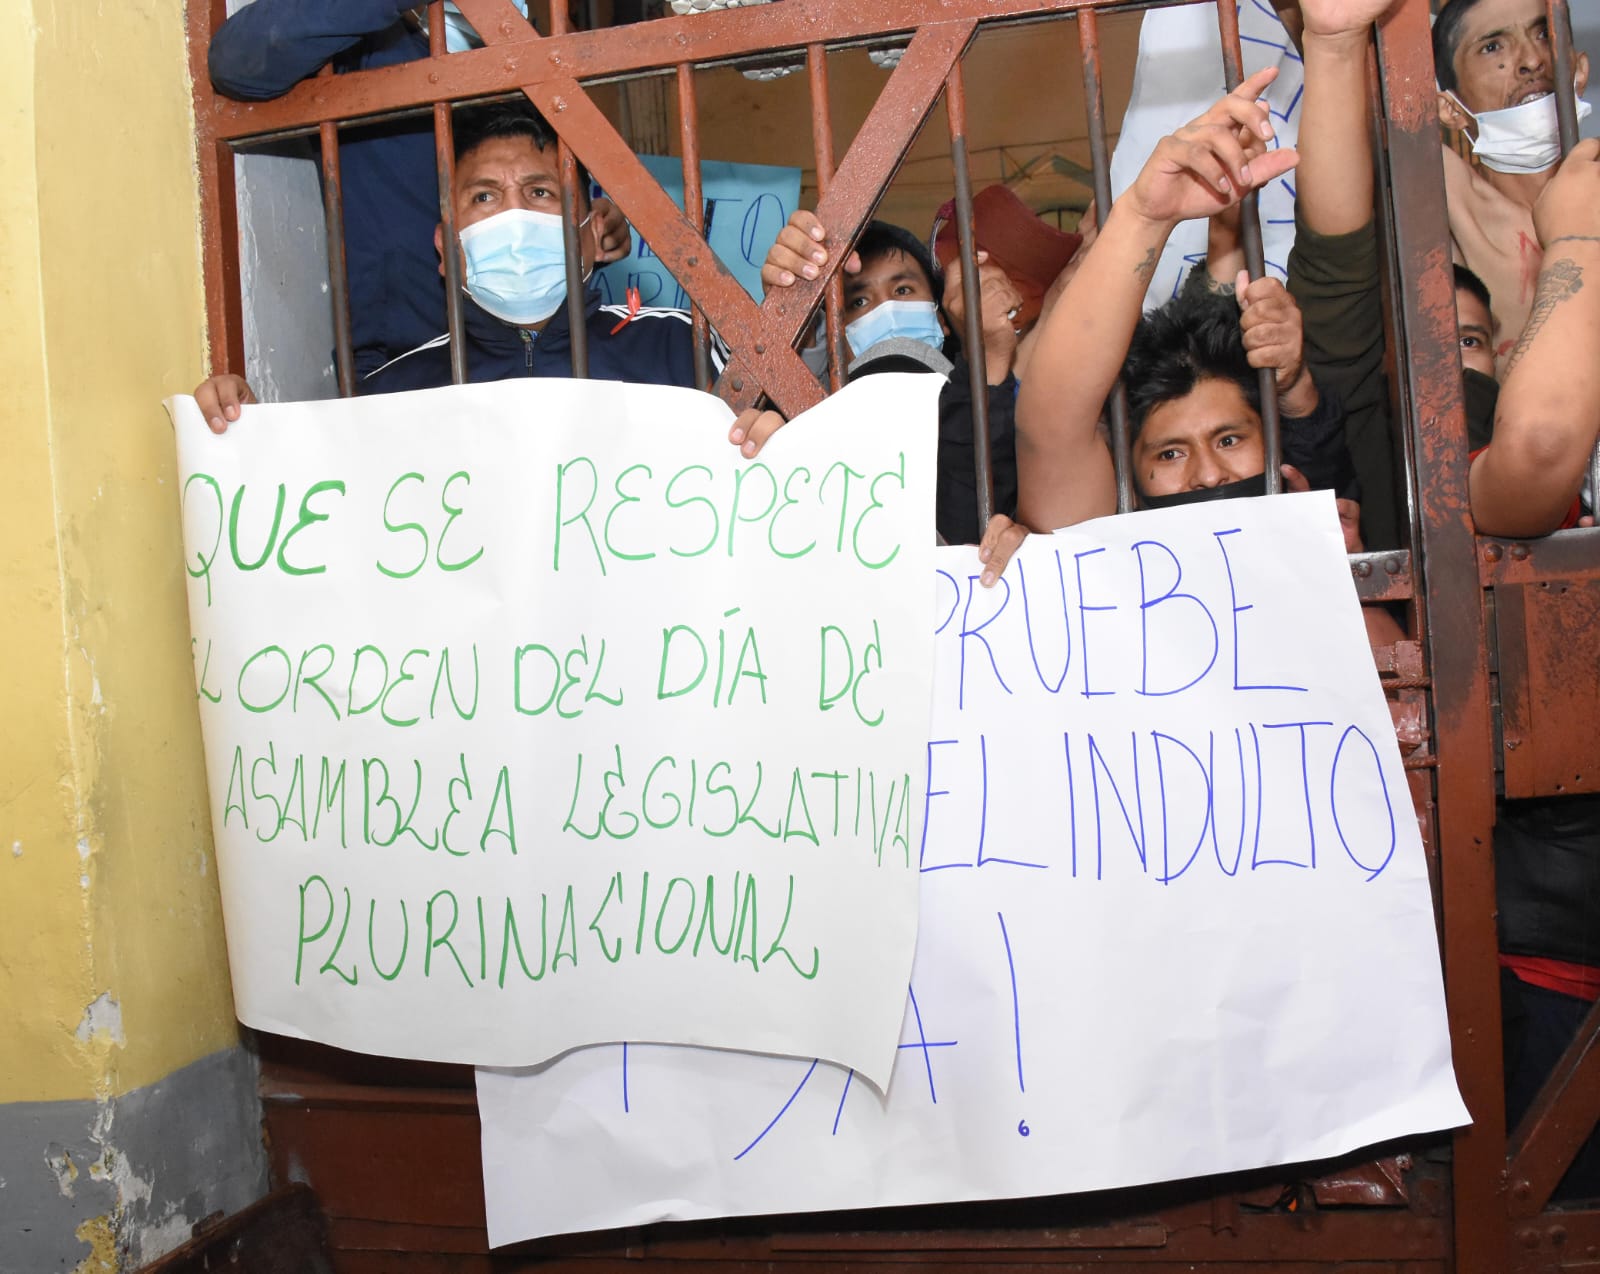 QUE SE RESPETE
EL ORDEN DEL DÍA DE
ASAMBLEA LEGISLATIVA
PLURINACIONAL
PRUEBE
EL INDULTO
YA!